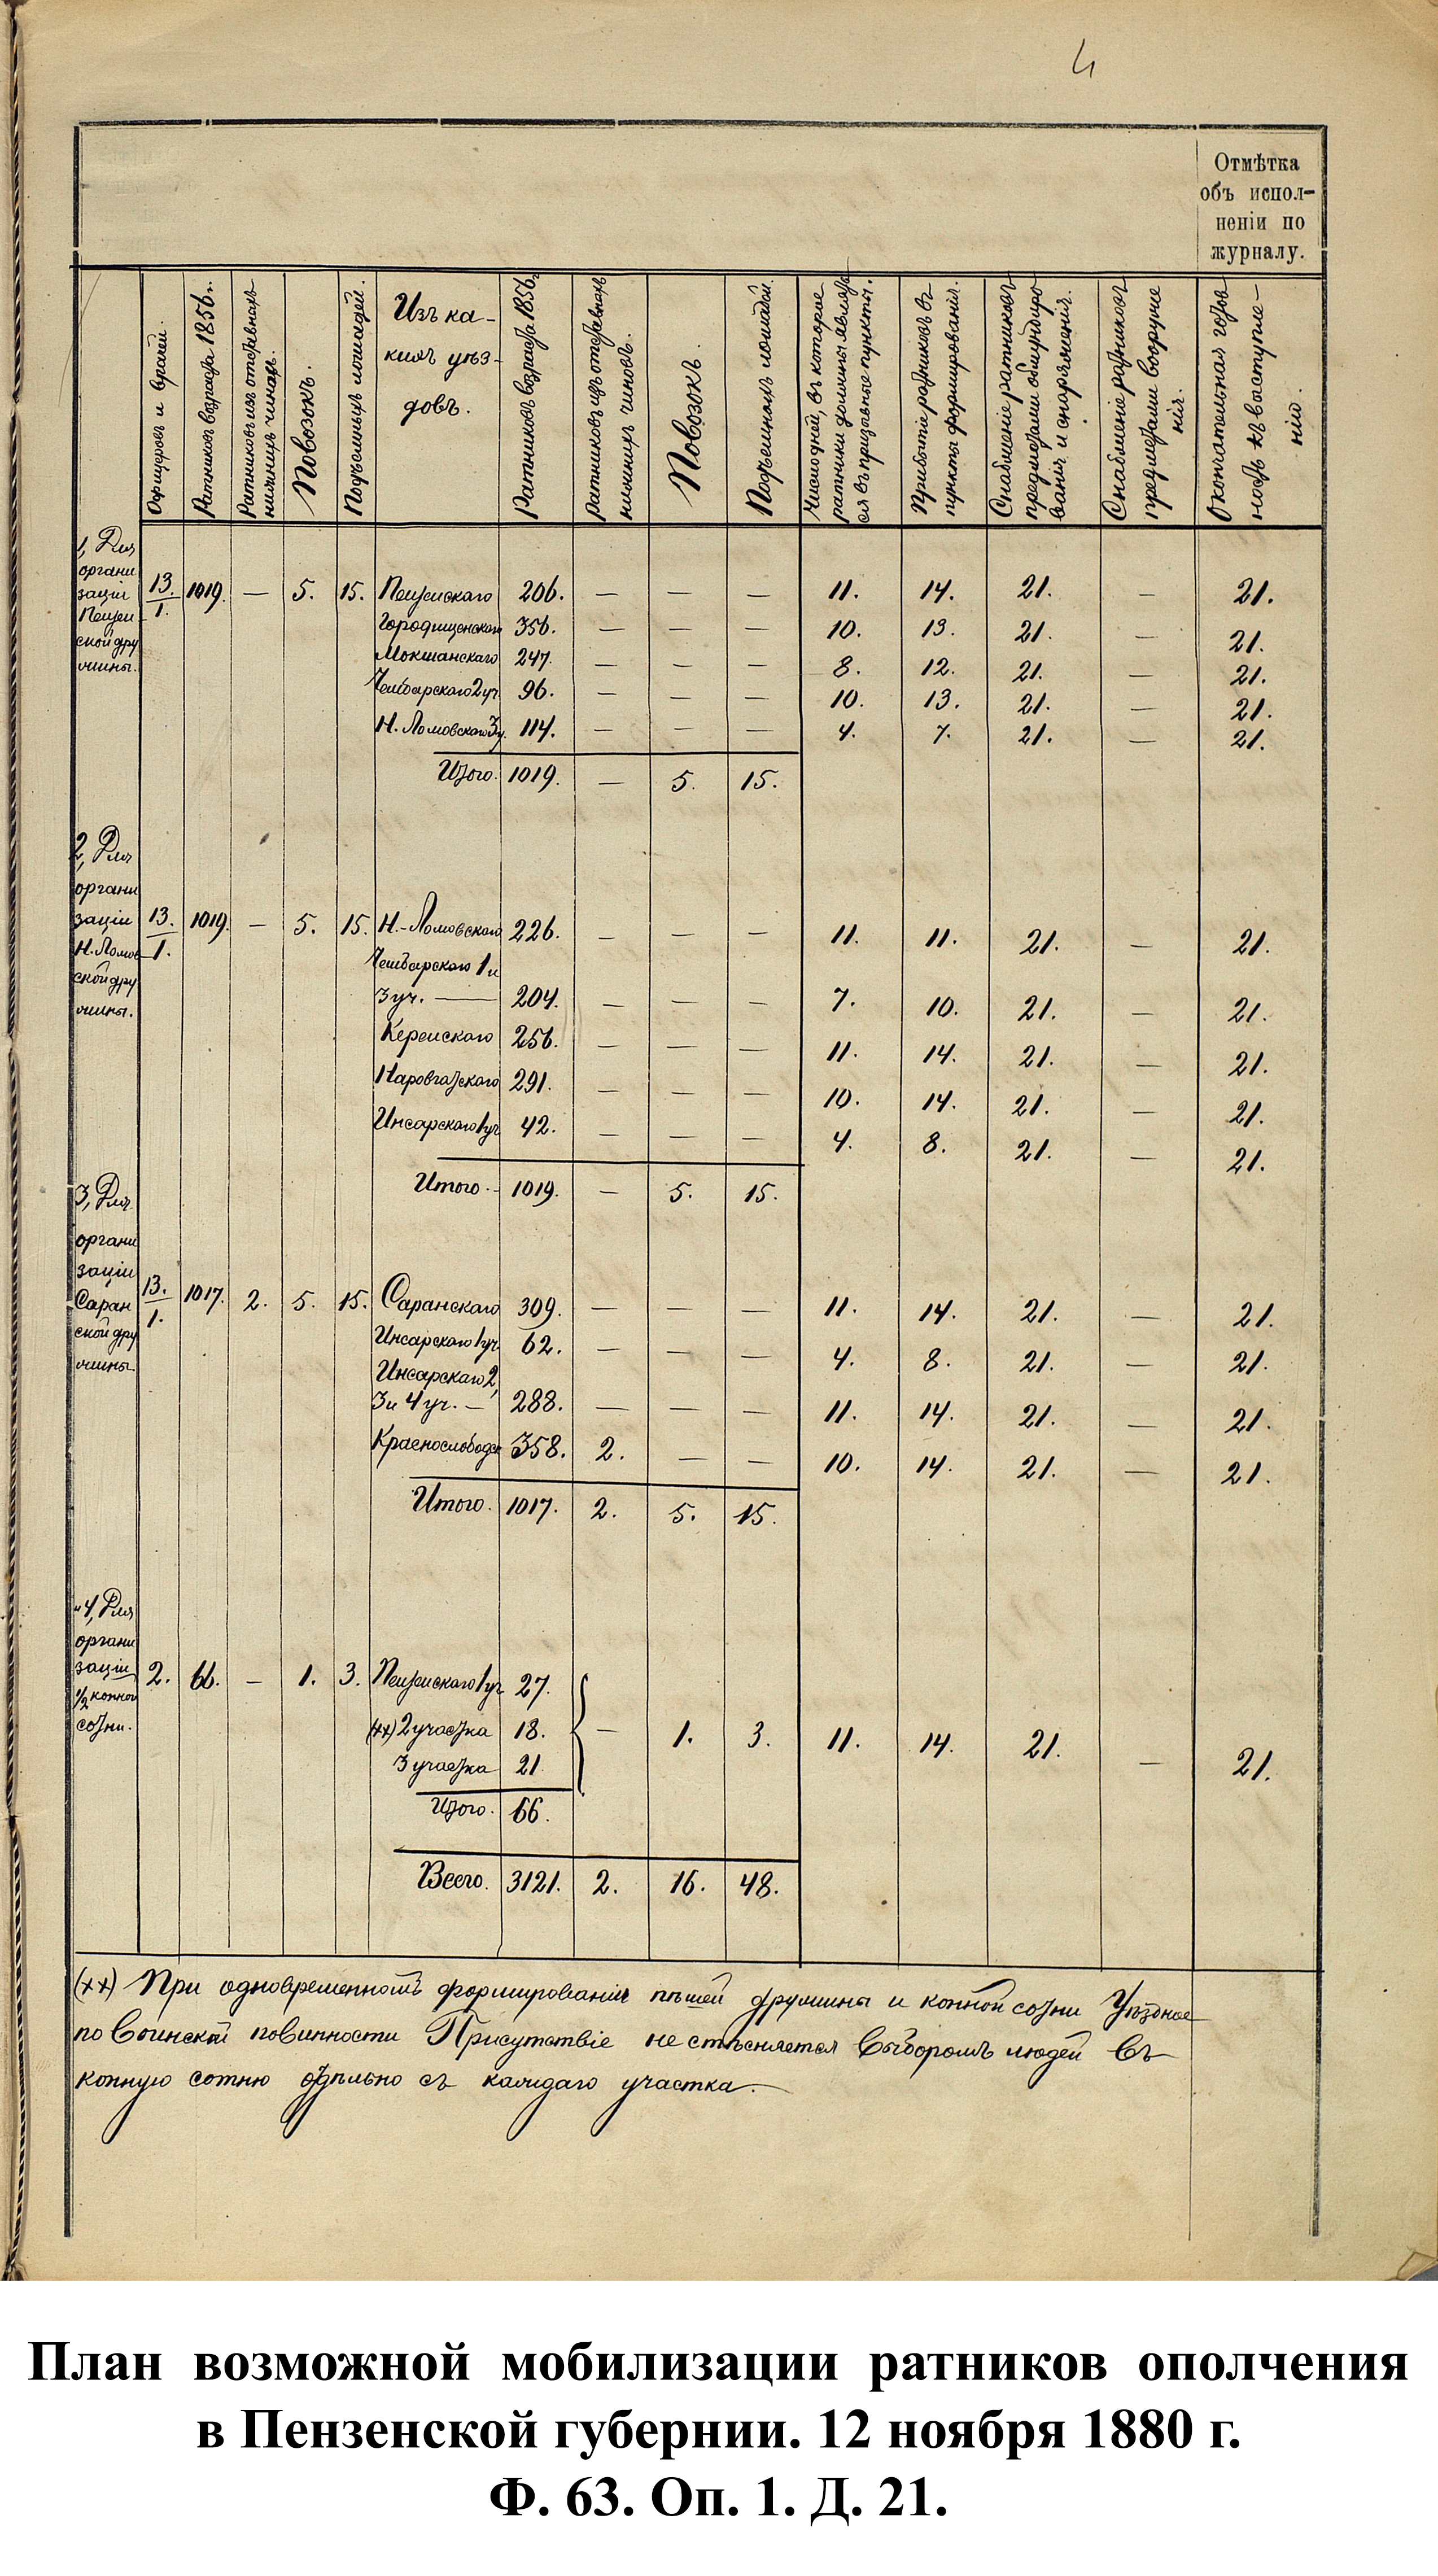 4
Отмѣтка
объ испол-
неніи по
журналу.
Офицеровъ и врачей.
Ратниковъ возраста 1856 г.
Ратниковъ изъ отставныхъ
нижнихъ чиновъ.
Повозокъ.
Подъемныхъ лошадей.
Изъ ка-
кихъ уѣз-
довъ.
Ратниковъ возраста 1856 г.
Ратниковъ изъ отставныхъ
нижнихъ чиновъ.
Повозокъ.
Подъемныхъ лошадей.
Число дней, въ которое
ратники должны являть
ся въ призывные пункты.
Прибытіе ратниковъ въ
пункты формированія.
Снабженіе ратниковъ
предметами обмундиро
ванія и снаряженія.
Снабженіе ратниковъ
предметами вооруже
нія.
Окончательная готов
ность къ выступле-
нію.
1, Для
органи
заціи
Пензен
ской дру
жины.
13./1. 1019. — 5. 15. Пензенскаго 206. — — — 11. 14. 21. — 21.
Городищенскаго 356. — — — 10. 13. 21. — 21.
Мокшанскаго 247. — — — 8. 12. 21. — 21.
Чембарскаго 2 уч. 96. — — — 10. 13. 21. — 21.
Н. Ломовскаго 3 у. 114. — — — 4. 7. 21. — 21.
Итого. 1019. — 5. 15.
2, Для
органи
заціи
Н. Ломов
ской дру
жины.
13./1. 1019. — 5. 15. Н.-Ломовскаго 226. — — — 11. 11. 21. — 21.
Чембарскаго 1 и
3 уч. — 204. — — — 7. 10. 21. — 21.
Керенскаго 256. — — — 11. 14. 21. — 21.
Наровчатскаго 291. — — — 10. 14. 21. — 21.
Инсарскаго 1 уч 42. — — — 4. 8. 21. — 21.
Итого. - 1019. — 5. 15.
3, Для
органи
заціи
Саран
ской дру
жины.
13./1. 1017. 2. 5. 15. Саранскаго 309. — — — 11. 14. 21. — 21.
Инсарскаго 1 уч. 62. — — — 4. 8. 21. — 21.
Инсарскаго 2,
3 и 4 уч. — 288. — — — 11. 14. 21. — 21.
Краснослободск 358. 2. — — 10. 14. 21. — 21.
Итого. 1017. 2. 5. 15.
4, Для
органи
заціи
1/2 конной
сотни.
2. 66. — 1. 3. Пензенскаго 1 уч 27.
(хх) 2 участка 18. — 1. 3. 11. 14. 21. — 21.
3 участка 21
Итого. 66.
Всего. 3121. 2. 16. 48.
(хх) При одновременномъ формированіи пѣшей дружины и конной сотни Уѣздное
по Воинской повинности Присутствіе не стѣсняется выборомъ людей въ
конную сотню отдѣльно съ каждаго участка. —
План возможной мобилизации ратников ополчения
в Пензенской губернии. 12 ноября 1880 г.
Ф. 63. Оп. 1. Д. 21.